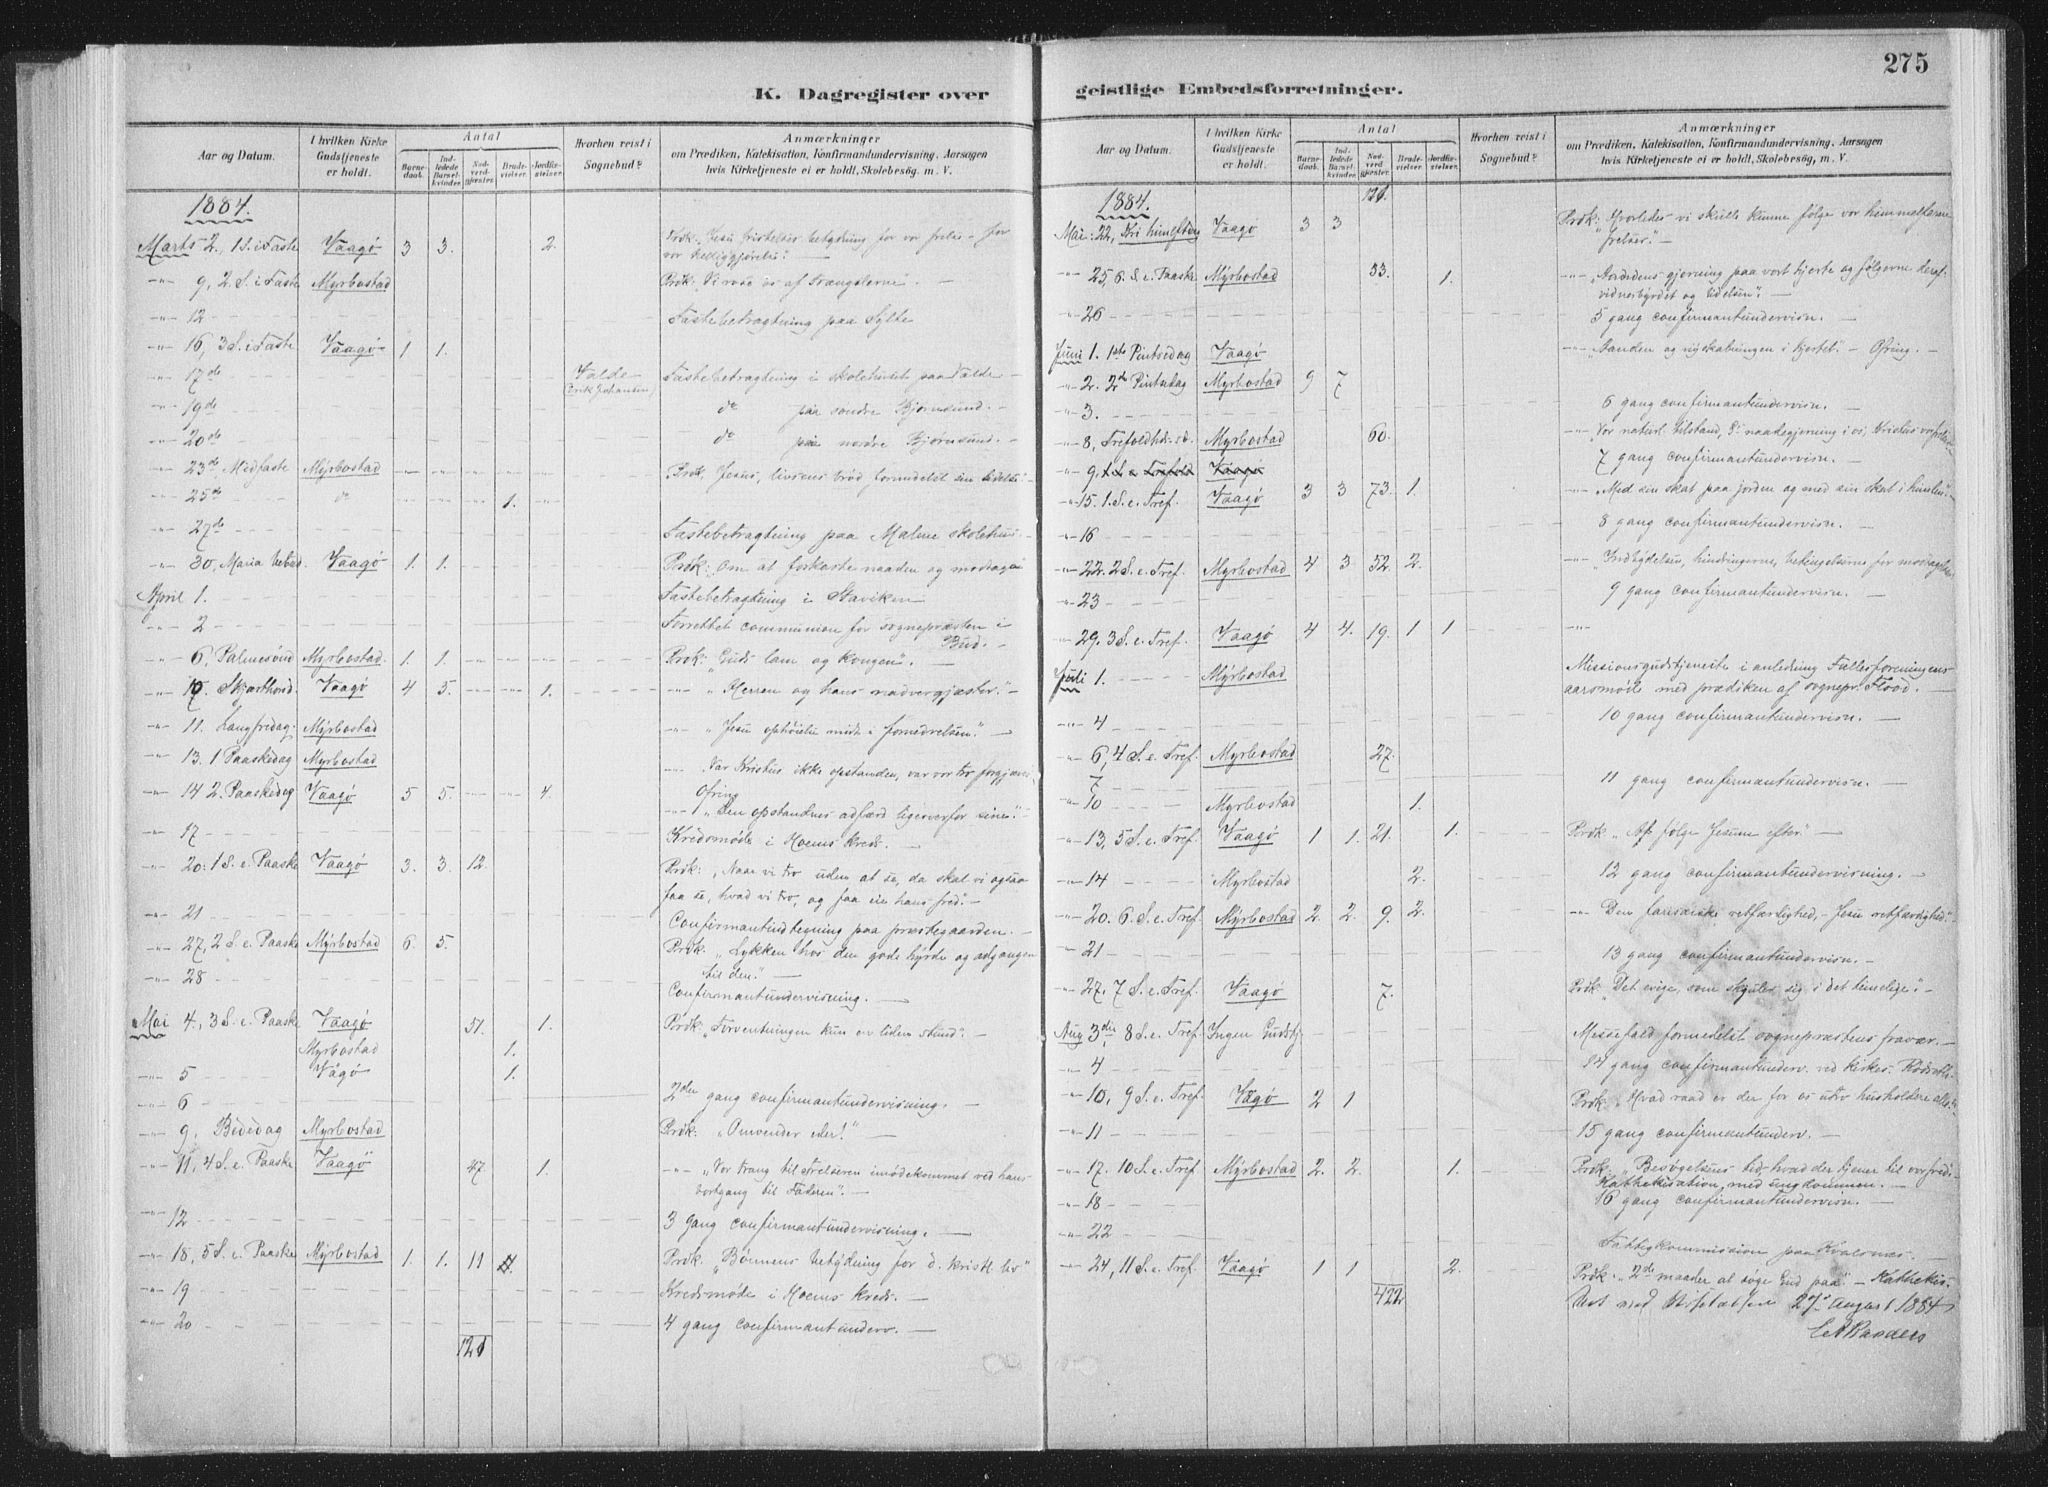 275
K. Dagregister over
geistlige Embedsforretninger.
Aar og Datum.
I hvilken Kirke Gudstjeneste er holdt.
Antal
Barnedaab.
Indledede Barselkvinder.
Nadverdgjæster.
Brudevielser.
Jordfæstelser.
Hvorhen reist i Sognebud?
Anmærkninger
om Prædiken, Katekisation, Konfirmandundervisning, Aarsagen
hvis Kirketjeneste ei er holdt, Skolebesøg. m. V.
1884.
Marts 2, 1 S. i Faste Vaagø 3 3. 2. Prdk: Jesu fristelses betydning for vor frelse - for
vor helliggjørelse". —
-"- 9, 2. S. i Faste Myrbostad Prdk: "Vi rose os af Trængslerne". —
-"- 12 Fastebetragtning paa Sylte
-"- 16, 3 S. i Faste Vaagø 1 1.
-"- 17de Valde Fastebetragtning i skolehuset paa Valde —
-"- 19de do paa søndre Bjørnsund. —
-"- 20de do paa nordre Bjørnsund. —
-"- 23de Midfaste Myrbostad Prdk. Jesus, livsens brød formedelst sin lidelse". —
-"- 25de do 1.
-"- 27de Fastebetragtning paa Malme skolehus. —
-"- 30, Maria bebud. Vaagø 1. 1. Prdk: "om at forkaste naaden og modtage
April 1. Fastebetragtning i Haviken
-"- 2 Forrettet communion for sognepræsten i
Bud. —
-"- 6, Palmesønd Myrbostad. 1. 1. Prdk: "Guds lam og kongen". —
-"- 10. Skjærthorsd. Vaagø 4 5. 1. -"- "Herren og hans nadvergjæster." —
-"- 11. Langfredag. Myrbostad -"- "Jesu ophøielse midt i fornedrelsen." —
-"- 13. 1 Paaskedag Myrbostad -"- Var Kristus ikke opstanden, var vor tro forgjæves
-"- 14 2. Paaskedag Vaagø 5 5. 4. Ofring
-"- "Den opstandnes adfærd ligeoverfor sine." —
-"- 17 Kredsmøde i Hoems kreds. —
-"- 20. 1 S. e. Paaske Vaagø 3. 3. 12. Prdk: "Naar vi tro uden at se, da skal vi ogsaa
faa se, hvad vi tro, og faa eie hans fred." —
-"- 21 Confirmantindtegning paa præstegaarden. —
-"- 27, 2 S. e. Paaske Myrbostad 6. 5. Prdk: "Lykken hos den gode hyrde og adgangen
til den." —
-"- 28 Confirmantundervisning. —
Mai 4, 3 S. e. Paaske Vaagø 51. 1. Prdk: "Forventningen kun en liden stund". —
Myrbostad 1.
-"- 5 Vågø 1.
-"- 6 2den gang confirmantundervisning. —
-"- 9, Bededag Myrbostad Prdk: "Omvender eder!" —
-"- 11, 4 S. e. Paaske Vaagø 47. 1. -"- "Vor trang til Frelseren imødekommet ved hans
bortgang til Faderen". —
-"- 12 3 gang confirmantundervisning. —
-"- 18, 5 S. e. Paaske Myrbostad 1. 1. 11 Prdk: "Bønnens betydning for d. kristl. liv"
-"- 19 Kredsmøde i Hoems kreds. —
-"- 20 4 gang confirmantunderv. —
121
Aar og Datum.
I hvilken Kirke Gudstjeneste er holdt.
Antal
Barnedaab.
Indledede Barselkvinder.
Nadverdgjæster.
Brudevielser.
Jordfæstelser.
Hvorhen reist i Sognebud?
Anmærkninger
om Prædiken, Katekisation, Konfirmandundervisning, Aarsagen
hvis Kirketjeneste ei er holdt, Skolebesøg, m. V.
1884. 121.
Mai: 22, Kri himlfting Vaagø 3 3 Prdk: "Hvorledes vi skulle kunne følge vor himmelfarne
frelser." —
-"- 25, 6. S. e. Paaske Myrbostad 33. 1. -"- "Aandens gjerning paa vort hjerte og følgerne deraf
vidnesbyrdet og lidelsen". —
-"- 26 5 gang confirmantundervisn. —
Juni 1. 1ste Pintsedag Vaagø -"- "Aanden og nyskabningen i hjertet". - Ofring. —
-"- 2. 2den Pintsedag Myrbostad 9 7
-"- 3. 6 gang confirmantundervisn. —
-"- 8, Trefoldhds. sd. Myrbostad 60. -"- "Vor naturl. tilstand, Gs naadegjerning i os, Kristus vor frelser
-"- 9. 1. S. e. Trefold Vaagø 7 gang confirmantundervisn. —
-"- 15. 1. S. e. Tref. Vaagø 3 3 73. 1. -"- "Med sin skat paa jorden og med sin skat i himlen". —
-"- 16 8 gang confirmantundervisn. —
-"- 22. 2 S. e. Tref. Myrbostad 4 3 52. 2. -"- "Indbydelsen, hindringerne, betingelserne for modtagelsen
-"- 23 9 gang confirmantundervisn. —
-"- 29. 3 S. e. Tref. Vaagø 4 4. 19. 1 1 -"-
Juli 1. Myrbostad Missionsgudstjeneste i anledning Fællesforeningens
aarsmøde med prædiken af sognepr. Flood. —
-"- 4 10 gang confirmantundervisn. —
-"- 6, 4 S. e. Tref. Myrbostad 27.
7 11 gang confirmantundervisn. —
-"- 10 Myrbostad 1.
-"- 13, 5 S. e. Tref. Vaagø 1 1. 21. 1. Prdk "At følge Jesum efter." —
-"- 14 Myrbostad 2. 12 gang confirmantundervisning. —
-"- 20. 6. S. e. Tref. Myrbostad 2. 2. 9. 2. -"- Den farisæiske retfærdighed, - Jesu retfærdighed". —
-"- 21 13 gang confirmantundervisn. —
-"- 27. 7 S. e. Tref. Vaagø 7. Prdk "Det evige, som skjuler sig i det timelige". —
Aug 3die, 8 S. e. Tref. Ingen Gudstj. Messefald formedelst sognepræstens fravær. —
-"- 4 14 gang confirmantunderv. ved kirkes.
-"- 10, 9 S. e. Tref. Vågø 2 1 Prdk: "Hvad raad er der for os utro husholdere alle."
-"- 11 15 gang confirmantunderv. —
-"- 17. 10 S. e. Tref. Myrbostad 2. 2. 1. Prdk: "Besøgelsens tid, hvad der tjener til vor fred".
Kathekisation med ungdommen. —
-"- 18 16 gang confirmantundervisn. —
-"- 22 Fattigkommission paa Kvalsnæs. —
-"- 24, 11 S. e. Tref. Vaagø 1 1 2. Prdk: "2de maader at søge Gud paa" - Kathekis.
422. Vist ved Visitatsen 27/8 August 1884